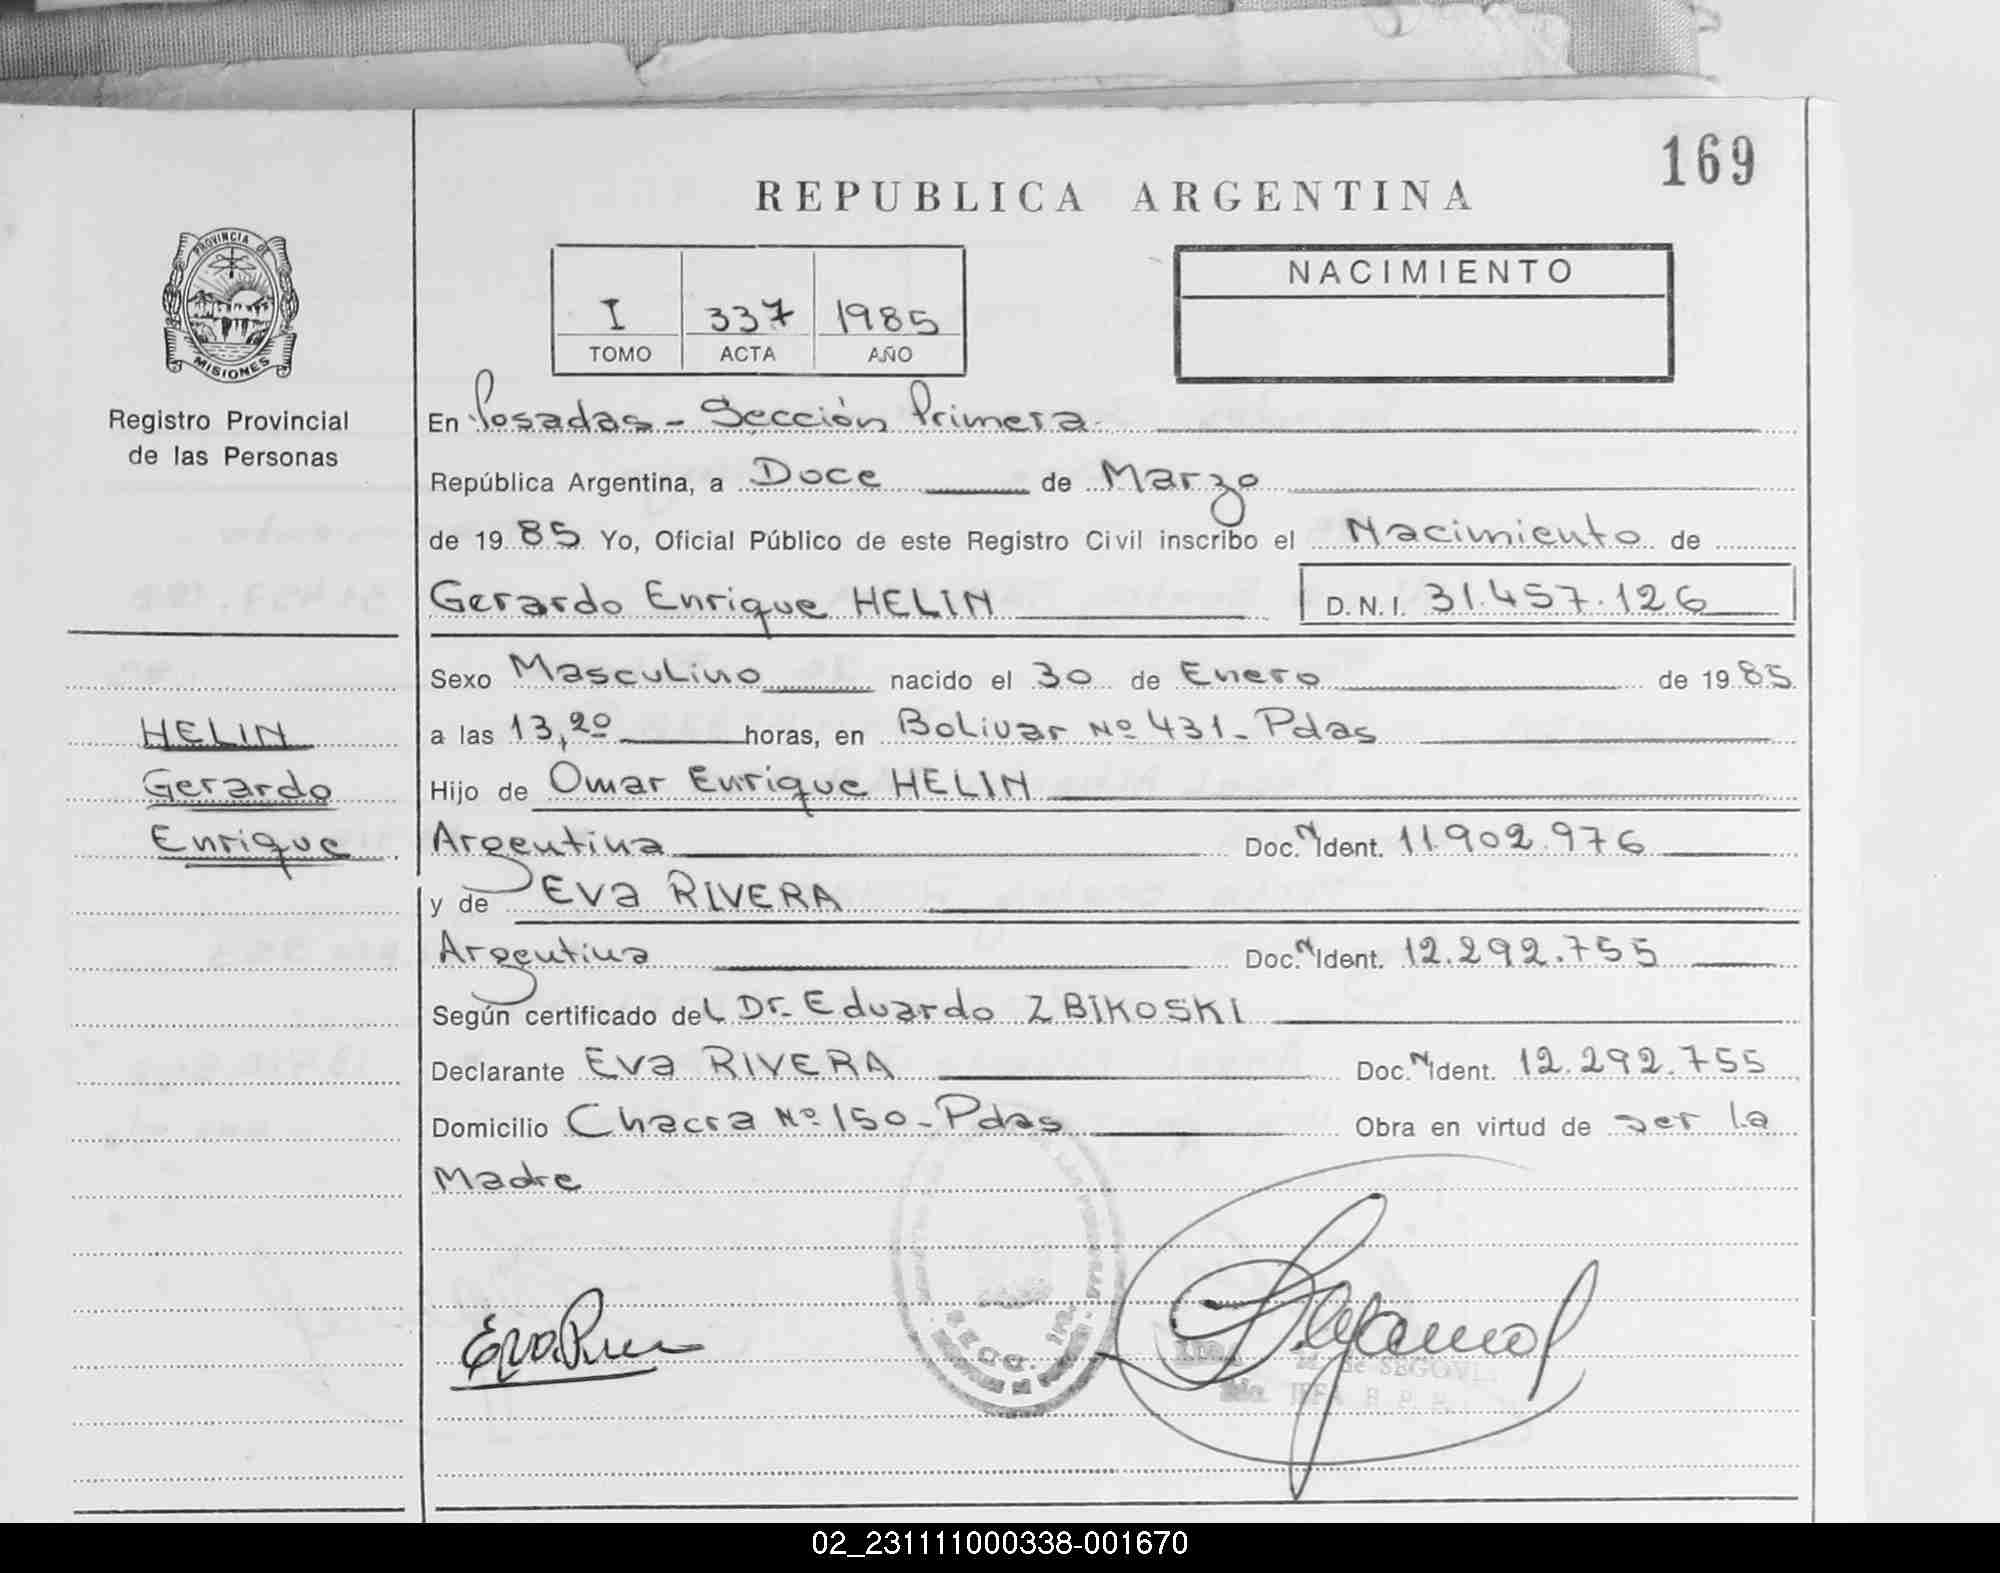 169
REPUBLICA ARGENTINA
PROVINCIA DE
MISIONES
Registro Provincial
de las Personas
I 337 1985
TOMO ACTA AÑO
NACIMIENTO
En Posadas - Sección Primera
República Argentina, a Doce de Marzo
de 1985 Yo, Oficial Público de este Registro Civil inscribo el Nacimiento de
Gerardo Enrique HELIN D.N.I. 31.457.126
Sexo Masculino nacido el 30 de Enero de 1985
HELIN
Gerardo
Enrique
a las 13,20 horas, en Bolivar Nº 431 - Pdas
Hijo de Omar Enrique HELIN
Argentina Doc. N Ident. 11.902.976
y de Eva RIVERA
Argentina Doc. N Ident. 12.292.755
Según certificado del Dr. Eduardo ZBIKOSKI
Declarante Eva RIVERA Doc. N Ident. 12.292.755
Domicilio Chacra Nº 150 - Pdas Obra en virtud de ser la
Madre
de SEGOVI
02_231111000338-001670